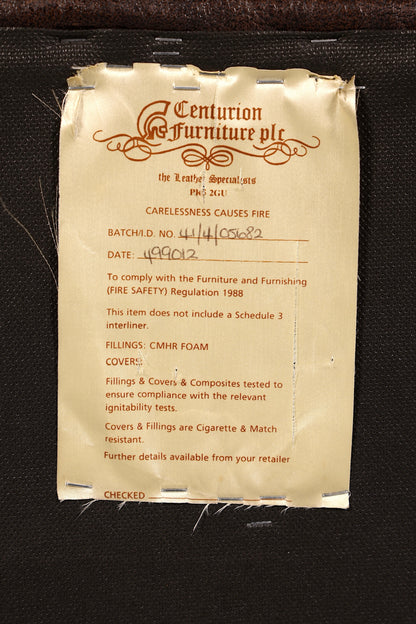 Centurion
Furniture plc
the Leather Specialists
PR5 2GU
CARELESSNESS CAUSES FIRE
BATCH/I.D. NO. 41/4/051682
DATE: 499012
To comply with the Furniture and Furnishing
(FIRE SAFETY) Regulation 1988
This item does not include a Schedule 3
interliner.
FILLINGS: CMHR FOAM
COVERS:
Fillings & Covers & Composites tested to
ensure compliance with the relevant
ignitability tests.
Covers & Fillings are Cigarette & Match
resistant.
Further details available from your retailer
CHECKED